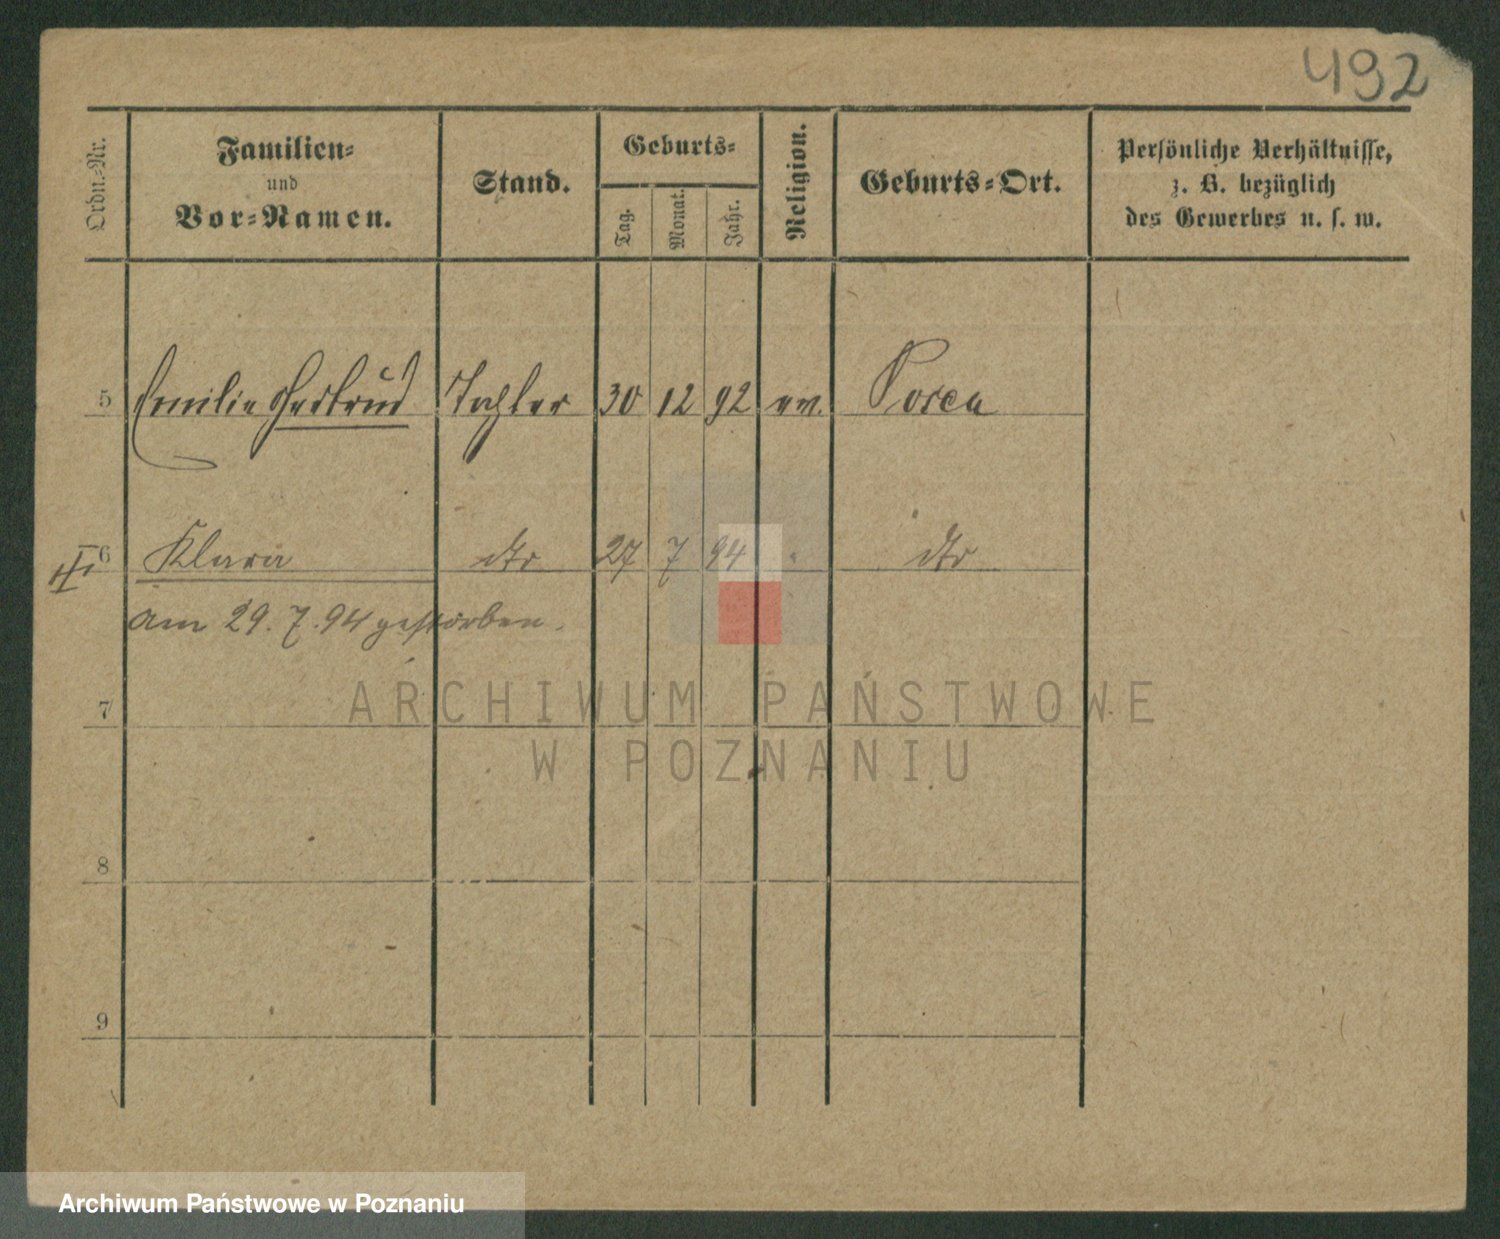 492
Ordn.-Nr.
Familien-
und
Vor-Namen.
Stand.
Geburts-
Tag.
Monat.
Jahr.
Religion.
Geburts-Ort.
Persönliche Verhältnisse,
z. B. bezüglich
des Gewerbes u. s. w.
5 Emilie Gertrud Tochter 30 12 92 ev.
6 Klara dto 27 7 94 " dto
am 29. 7. 94 gestorben.
7
8
9
ARCHIWUM PAŃSTWOWE
W POZNANIU
Archiwum Państwowe w Poznaniu